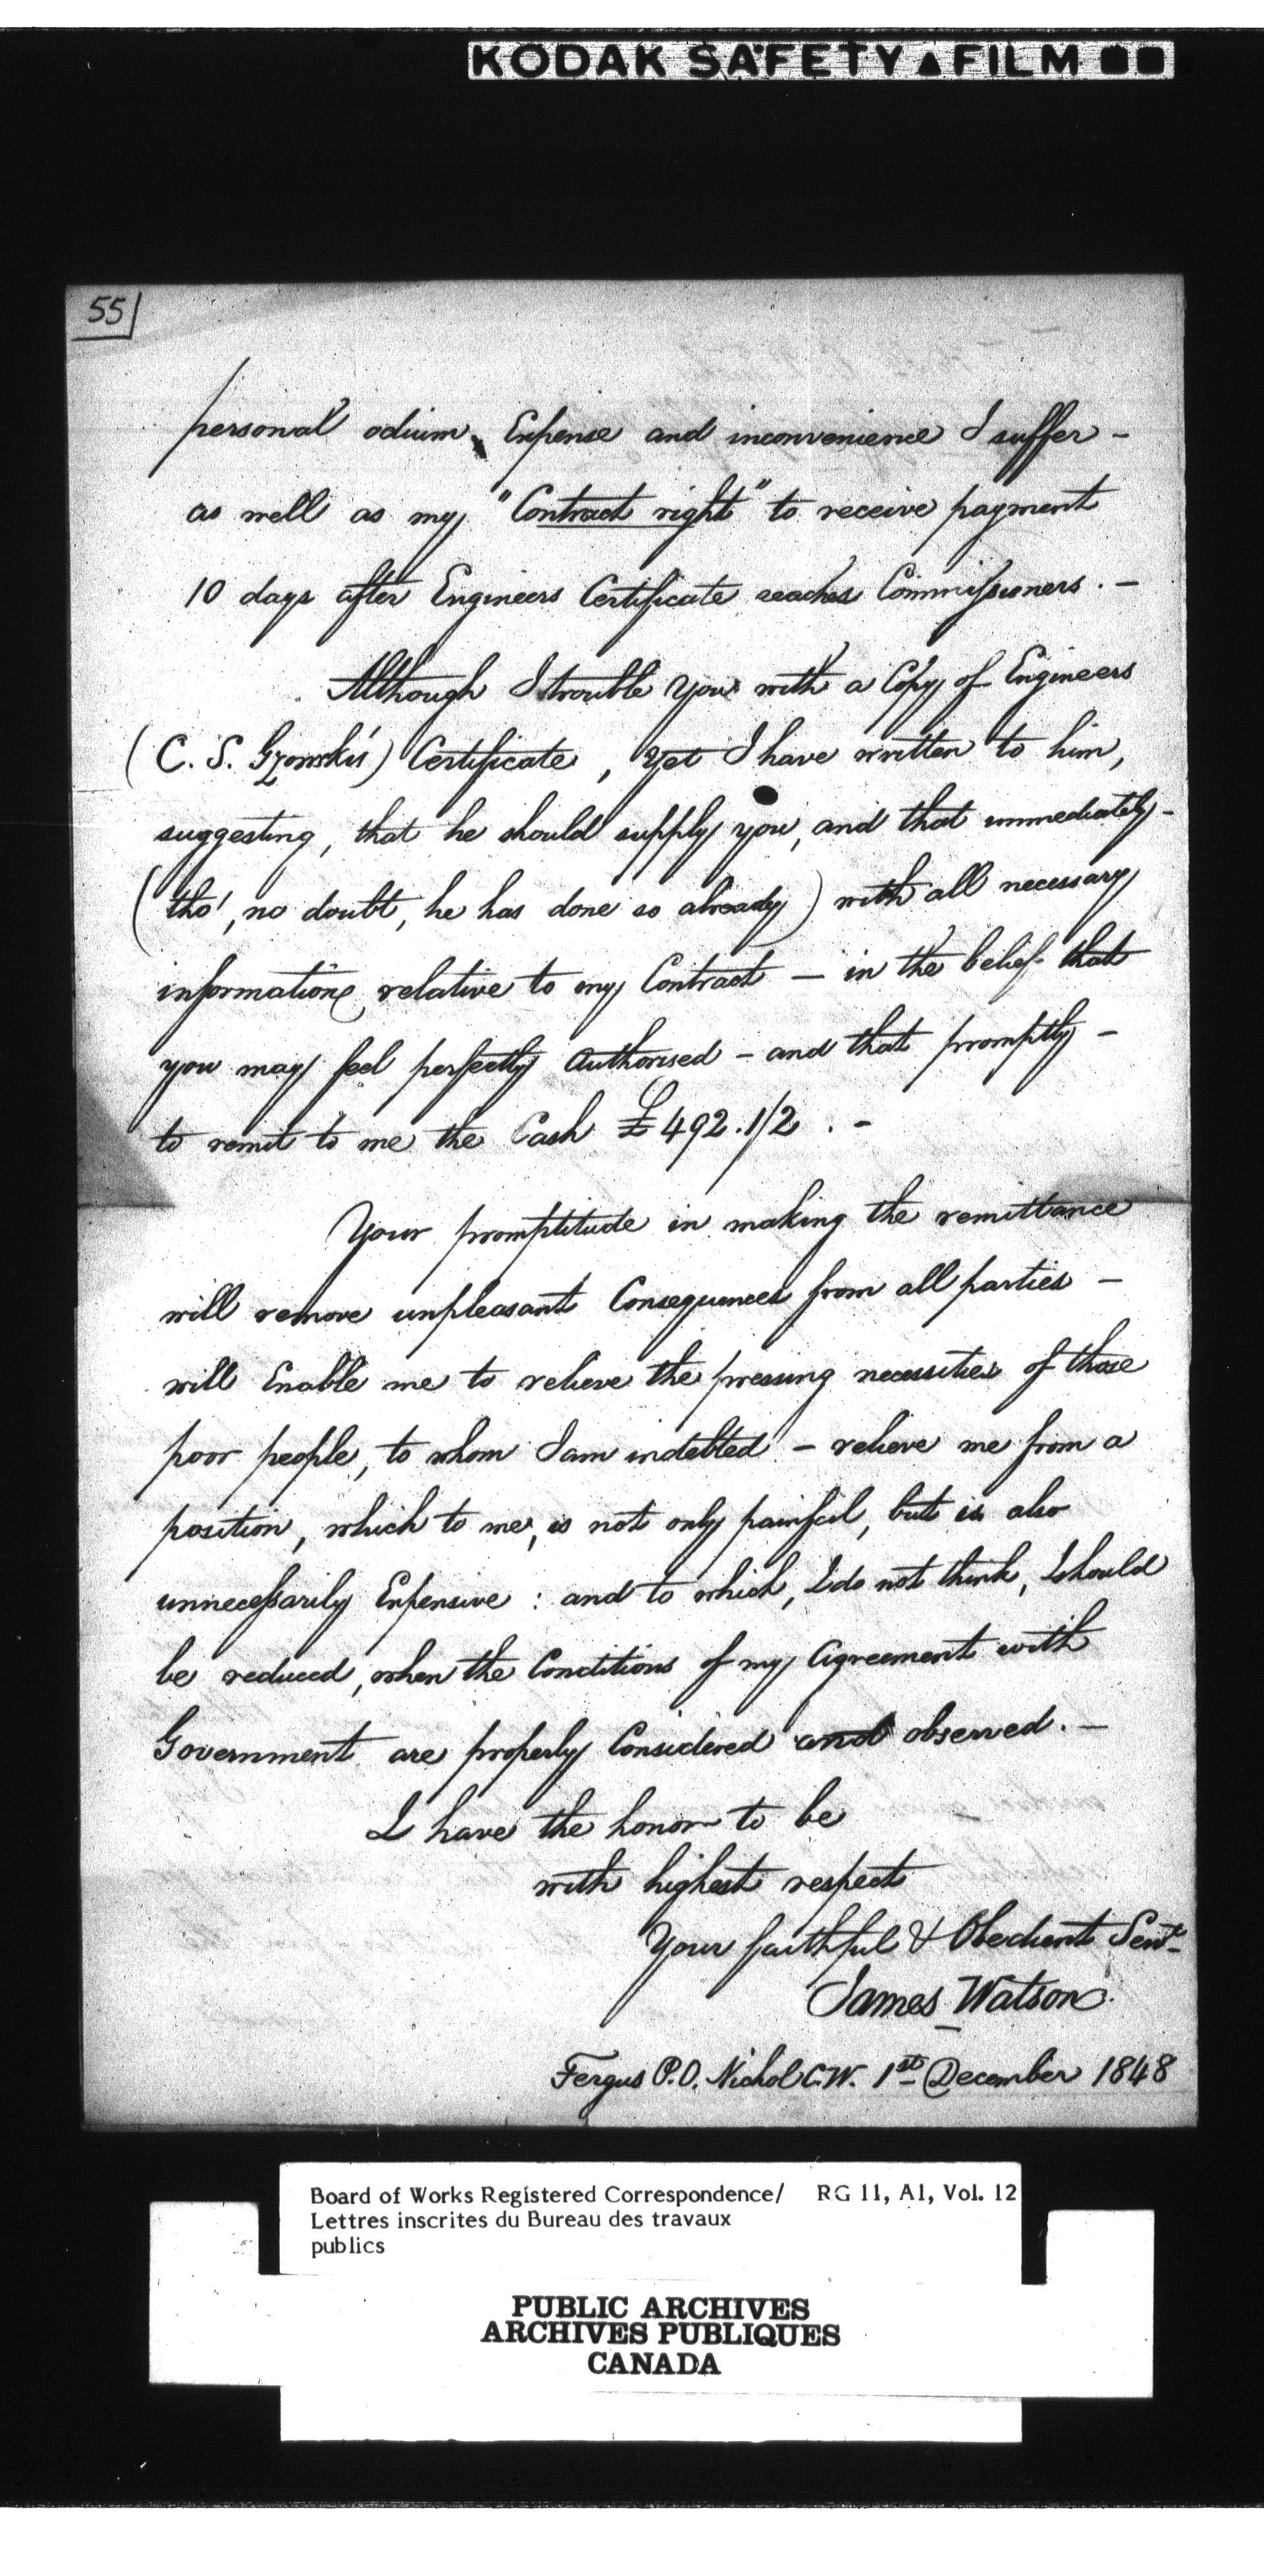 KODAK SAFETY ▲ FILM
55
personal odium, Expense and inconvenience I suffer -
as well as my "Contract right" to receive payment
10 days after Engineers Certificate reaches Commissioners. -
Although I trouble you with a Copy of Engineers
(C. S. Gzowski's) Certificate, yet I have written to him,
suggesting, that he should supply you, and that immediately -
(tho', no doubt, he has done so already) with all necessary
information relative to my Contract - in the belief that
you may feel perfectly authorised - and that promptly -
to remit to me the Cash £492.1/2. -
Your promptitude in making the remittance
will remove unpleasant Consequences from all parties -
will Enable me to relieve the pressing necessities of those
poor people, to whom I am indebted - relieve me from a
position, which to me, is not only painful, but is also
unnecessarily Expensive : and to which, I do not think, I should
be reduced, when the Conditions of my Agreement with
Government are properly Considered and observed. -
I have the honor to be
with highest respect
Your faithful & Obedient Servt
James Watson.
Fergus P.O. Nichol C.W. 1st December 1848
Board of Works Registered Correspondence/ RG 11, A1, Vol. 12
Lettres inscrites du Bureau des travaux
publics
PUBLIC ARCHIVES
ARCHIVES PUBLIQUES
CANADA